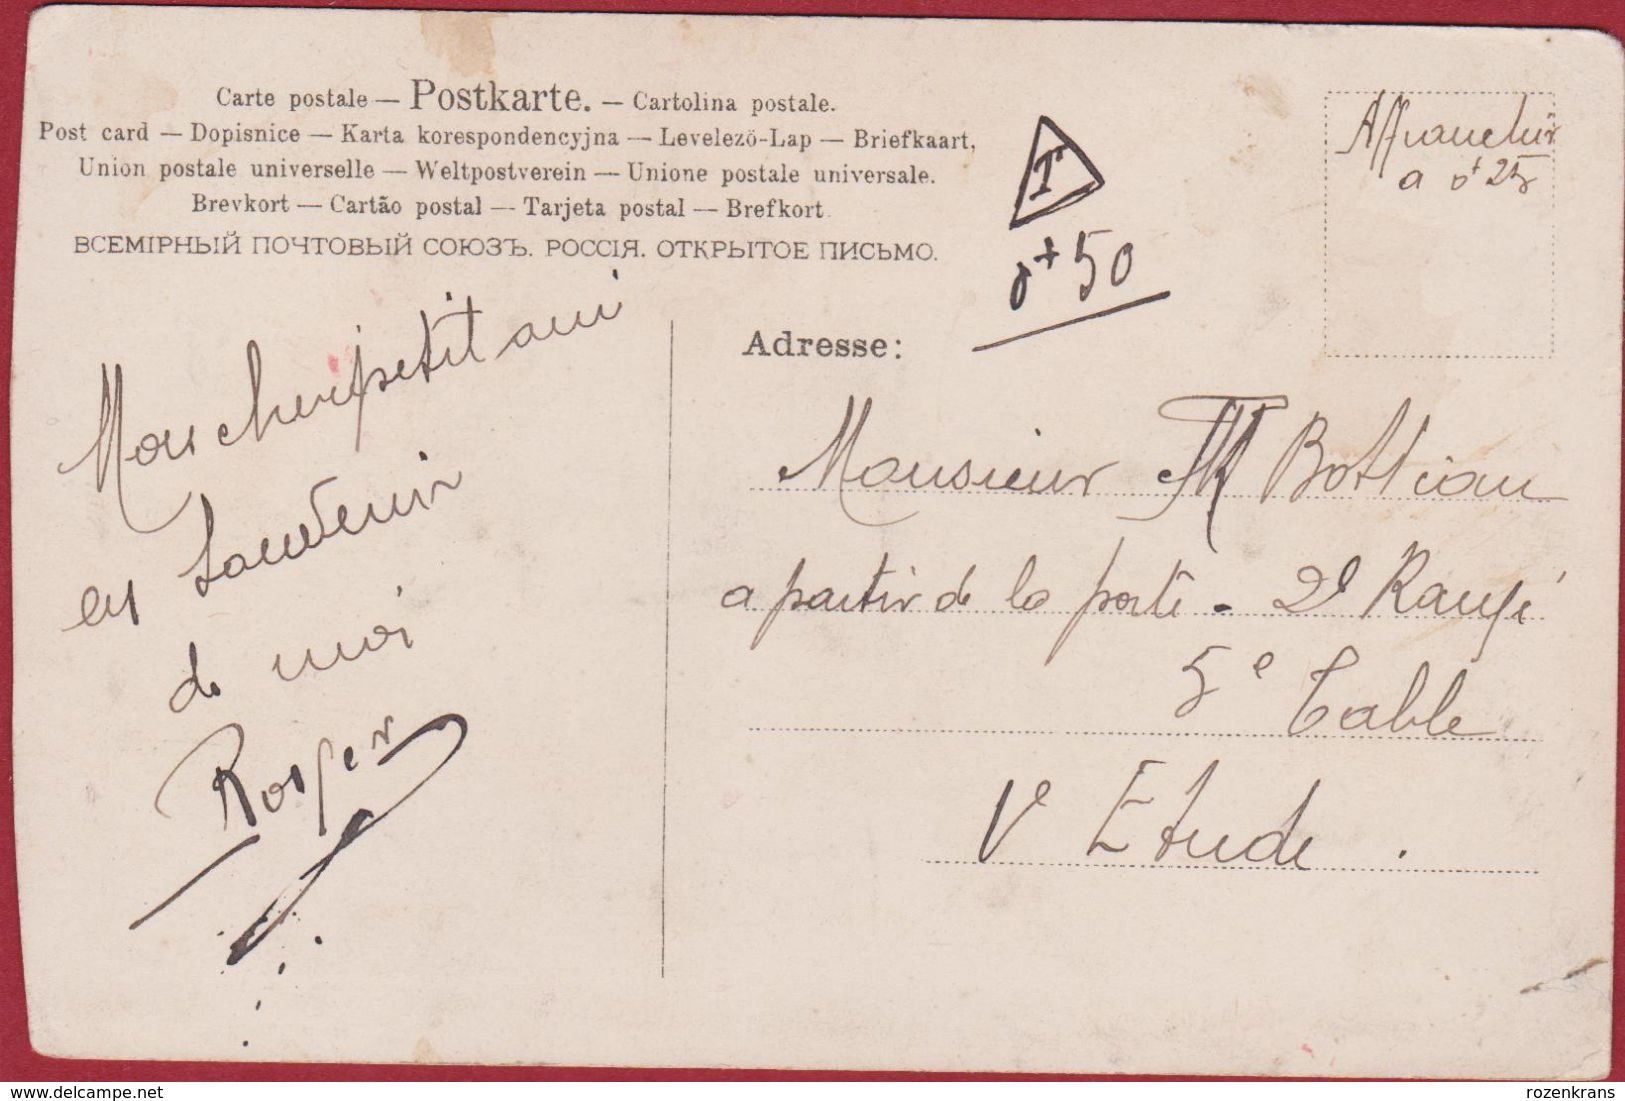 Carte postale — Postkarte. — Cartolina postale.
Post card — Dopisnice — Karta korespondencyjna — Levelező-Lap — Briefkaart,
Union postale universelle — Weltpostverein — Unione postale universale.
Brevkort — Cartão postal — Tarjeta postal — Brefkort
ВСЕМІРНЫЙ ПОЧТОВЫЙ СОЮЗЪ. РОССІЯ. ОТКРЫТОЕ ПИСЬМО.
Affranchir
a 0f 25
T
0f 50
Mon cher petit ami
en souvenir
de moi
Roger
Adresse:
Monsieur
a partir de la porte - 2e Rangé
5e Table
Ve Etude.
rozenkrans